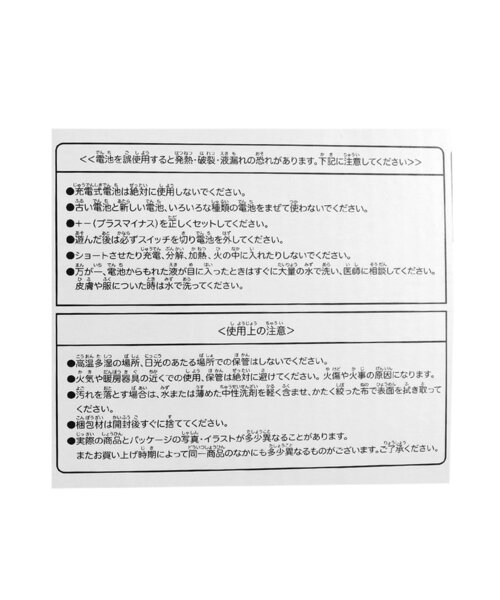 <<電池を誤使用すると発熱・破裂・液漏れの恐れがあります。下記に注意してください>>
●充電式電池は絶対に使用しないでください。
●古い電池と新しい電池、いろいろな種類の電池をまぜて使わないでください。
●+-(プラスマイナス)を正しくセットしてください。
●遊んだ後は必ずスイッチを切り電池を外してください。
●ショートさせたり充電、分解、加熱、火の中に入れたりしないでください。
●万が一、電池からもれた液が目に入ったときはすぐに大量の水で洗い、医師に相談してください。
皮膚や服についた時は水で洗ってください。
<使用上の注意>
●高温多湿の場所、日光のあたる場所での保管はしないでください。
●火気や暖房器具の近くでの使用、保管は絶対に避けてください。火傷や火事の原因になります。
●汚れを落とす場合は、水または薄めた中性洗剤を軽く含ませ、かたく絞った布で表面を拭き取って
ください。
●梱包材は開封後すぐに捨ててください。
●実際の商品とパッケージの写真・イラストが多少異なることがあります。
またお買い上げ時期によって同一商品のなかにも多少異なるものがございます。ご了承ください。